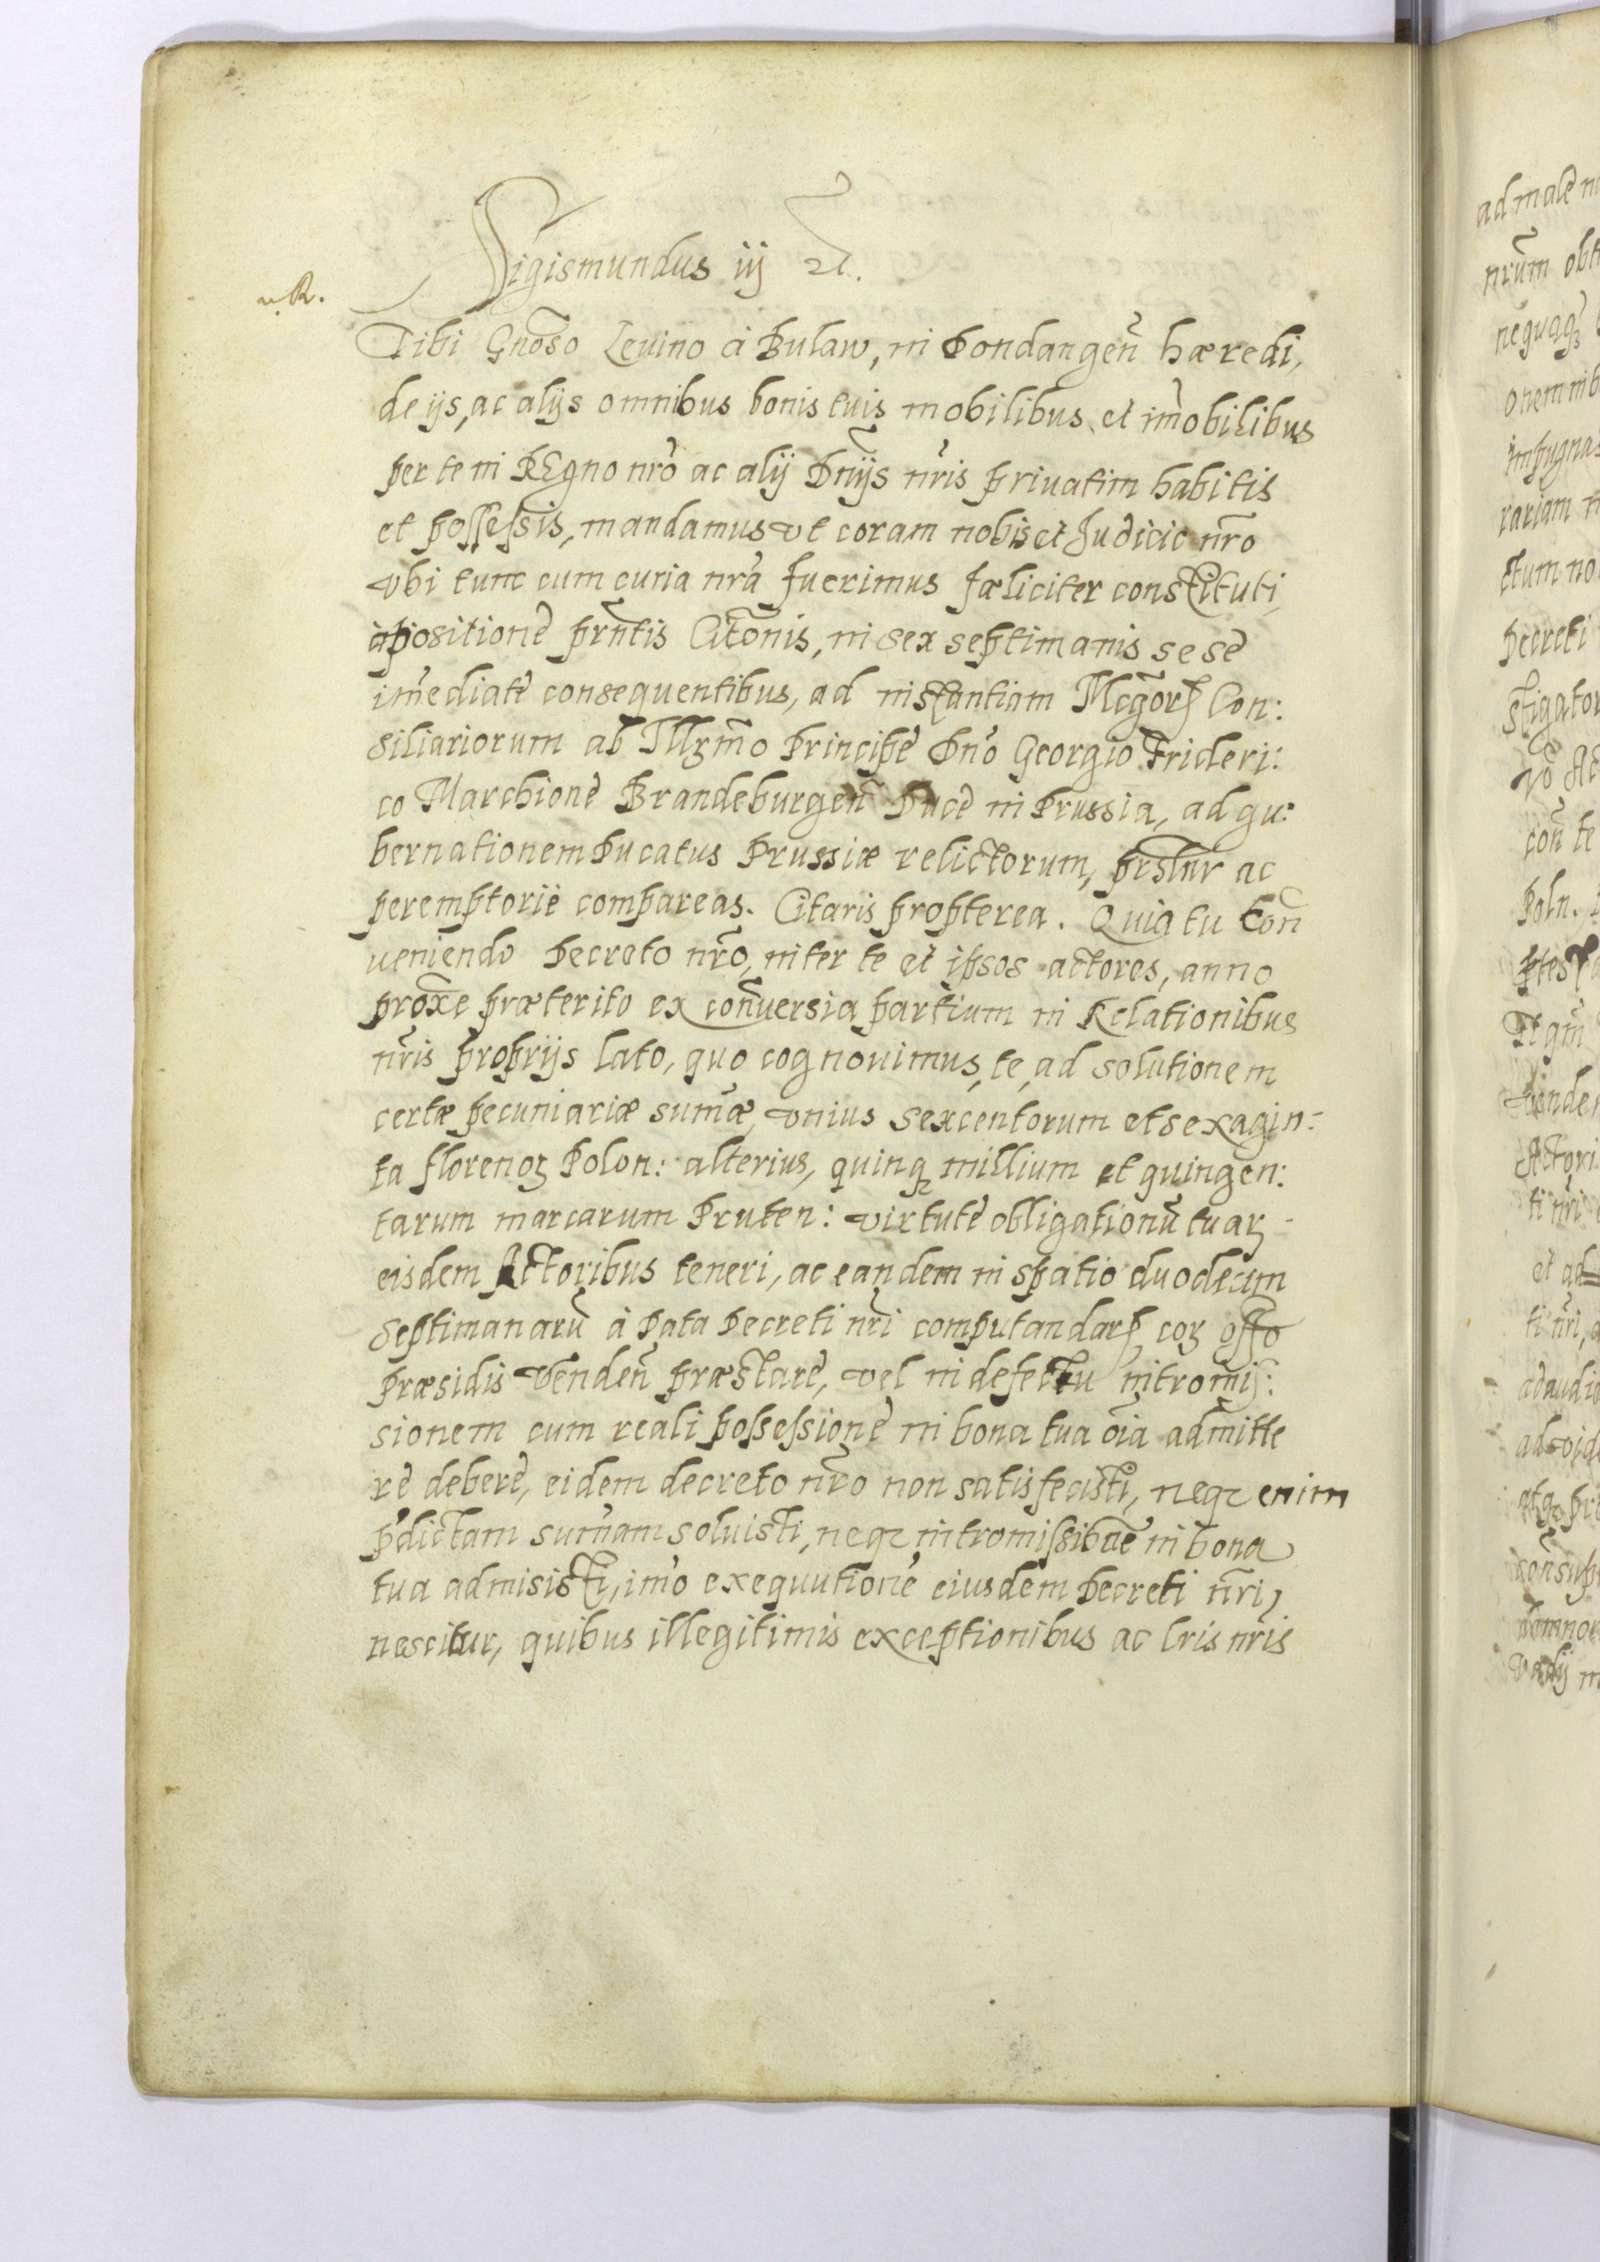 Sigismundus iij &c.
v. R.
Tibi Gnoso Levino à Bulaw, in Dondangen̄ hæredi,
de ijs, ac alijs omnibus bonis tuis mobilibus et im̄obilibus
per te in REgno nr̄o ac alij Dn̄ijs nr̄is privatim habitis
et possessis, mandamus vt coram nobis et Judicio nr̄o
vbi tunc cum curia nr̄a fuerimus fæliciter constituti,
à positione pr̄ntis Citōnis, in sex septimanis sese
im̄ediatè consequentibus, ad instantiam Mcgōrꝝ Con:
siliariorum ab Illr̄mo Principe Dn̄o Georgio Frideri:
co Marchione Brandeburgen̄ Duce in Prussia, ad gu:
bernationem Ducatus Prussiæ relictorum, pr̄slnr ac
peremptoriè compareas. Citaris propterea. Quia tu con̄
veniendo Decreto nr̄o, inter te et ipsos actores, anno
prox̄e præterito ex con̄versia partium in Relationibus
nr̄is proprijs lato, quo cognovimus, te, ad solutionem
certæ pecuniariæ sum̄æ, vnius sexcentorum et sexagin:
ta florenoꝝ Polon: alterius, quinqꝫ millium et quingen:
tarum marcarum Pruten: virtute obligationū tuaꝝ
eisdem Actoribus teneri, ac eandem in spatio duodecim
septimanarū à Data Decreti nr̄i computandarꝝ, coꝝ offō
Præsidis Venden̄ præstare, vel in defectu intromis:
sionem cum reali possessione in bona tua oīa admitte
re debere, eidem decreto nr̄o non satisfecisti, neqꝫ enim
p̄dictam sum̄am solvisti, neqꝫ intromissionē in bona
tua admisisti, im̄o exequutionē eiusdem Decreti nr̄i,
nescitur, quibus illegitimis exceptionibus ac lr̄is nr̄is